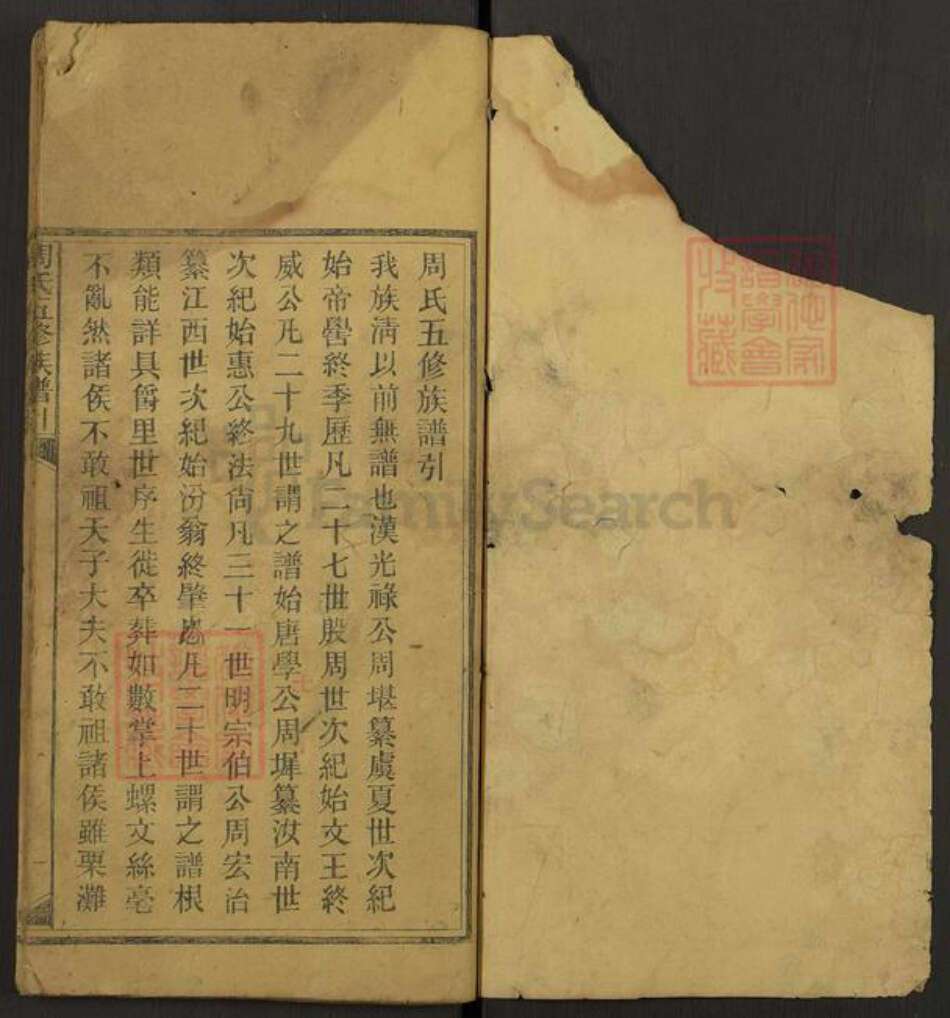 周氏五修族譜引
我族淸以前無譜也漢光祿公周堪纂虞夏世次紀
始帝嚳終季歷凡二十七世殷周世次紀始文王終
威公凡二十九世謂之譜始唐學公周墀纂汝南世
次紀始惠公終法尙凡三十一世明宗伯公周宏治
纂江西世次紀始汾翁終肇凡二十世謂之譜根
類能詳具爵里世序生徙卒葬如數掌上螺文絲毫
不亂然諸侯不敢祖天子大夫不敢祖諸侯雖栗灘
周氏五修族譜引
FamilySearch
譜學會
收藏